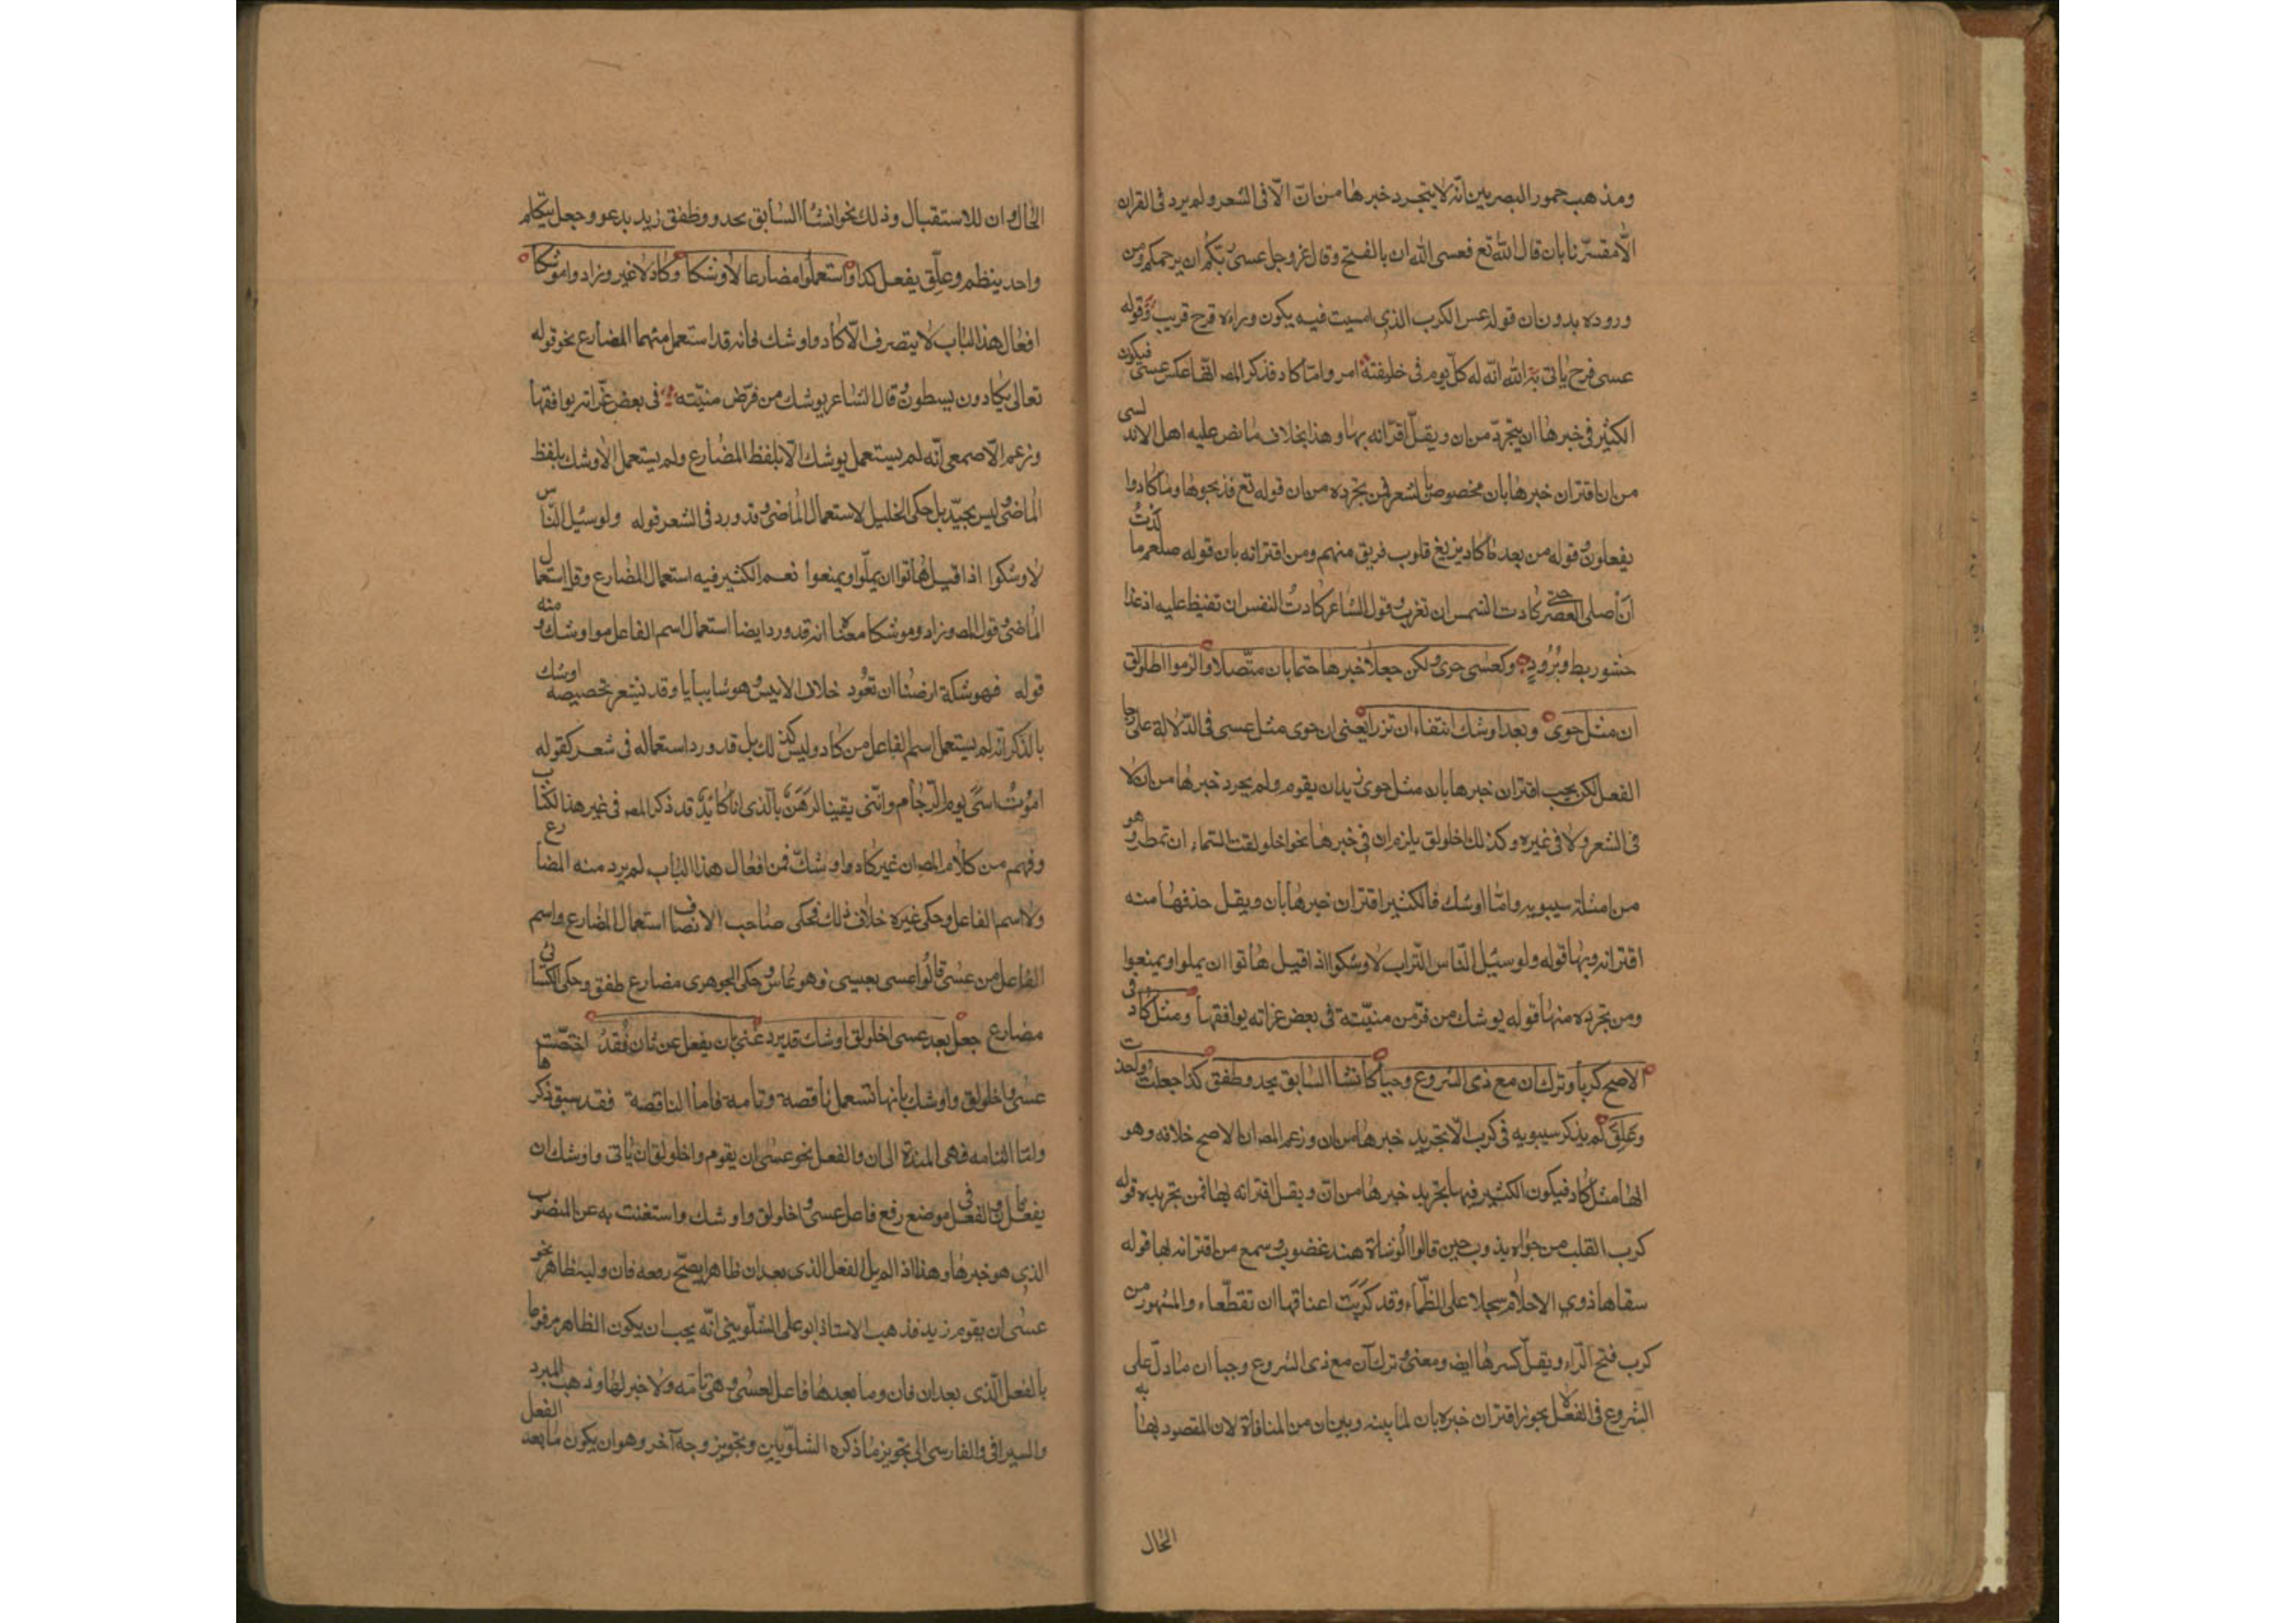 ومذهب جمهور البصريين انّه لا يتجرد خبرها من ان الّا فى الشعر ولم يرد فى القران
الّا مقترنا بان قال اللّه تع فعسى اللّه ان بالفتح وقال عز وجل عسى ربكم ان يرحمكم ومن
وروده بدون ان قوله عسى الكرب الذى امسيت فيه يكون وراءه فرح قريب وقوله
عسى فرح ياتى به اللّه انّه له كلّ يوم فى خليقته امر وامّا كاد فذكر المصـ انّها عكس عسى فيكون
الكثير فى خبرها ان يتجرّد من ان ويقلّ اقترانه بها وهذا بخلاف ما نص عليه اهل الاندلسى
من ان اقتران خبرها بان مخصوص بالشعر فمن تجرده من ان قوله تع فذبحوها وما كادوا
يفعلون وقوله من بعد ما كاد يزيغ قلوب فريق منهم ومن اقترانه بان قوله صلعم ما كدت
ان اصلى العصر حتى كادت الشمس ان تغرب وقول الشاعر كادت النفس ان تفيظ عليه اذ غدا
حشو ريط وبرود وكعسى حرى ولكن جعلا خبرها حتما بان متّصلا والزموا اخلولق
ان مثل حرى وبعد اوشك انتفاء ان نزرا يعنى ان حرى مثل عسى فى الدّلالة على رجا
الفعل لكن يجب اقتران خبرها بان مثل حرى زيد ان يقوم ولم يجرد خبرها من ان لا
فى الشعر ولا فى غيره وكذلك اخلولق يلزم ان فى خبرها نحو اخلولقت السّماء ان تمطر وهو
من امثلة سيبويه وامّا اوشك فالكثير اقتران خبرها بان ويقل حذفها منه
اقترانه وبها قوله ولو سئيل النّاس التّراب لاوشكوا اذا قيل هاتوا ان يملوا ويمنعوا
ومن تجرده منها قوله يوشك من فرّ من منيّته فى بعض غراته يوافقها ومثل كاد فى
الاصح كربا وترك ان مع ذى الشروع وجبا كانشا السّابق يحدو طفق كذا جعلت واخذت
وعلق لم يذكر سيبويه فى كرب الّا تجريد خبرها من ان وزعم المصـ ان الاصح خلافه وهو
انها مثل كاد فيكون الكثير فيها تجريد خبرها من ان ويقل اقترانه بها فمن تجريده قوله
كرب القلب من جواه يذوب حين قال الوشاة هند غضوب وسمع من اقترانه بها قوله
سقاها ذوى الاحلام سجلا على الظّماء وقد كربت اعناقها ان تقطّعاء والمشهور من
كرب فتح الرّاء ويقلّ كسرها ايضا ومعنى وترك ان مع ذى الشروع وجبا ان ما دلّ على
الشروع فى الفعل لا يجوز اقتران خبره بان لما بينه وبين ان من المنافاة لان المقصود به بها
الحال
الحال وان للاستقبال وذلك نحو انشا السّابق يحدو وطفق زيد يدعو وجعل يتكلم
واحد ينظم وعلّق يفعل كذا واستعملوا مضارعا لاوشكا وكاد لا غير وزادوا موشكا
افعال هذا الباب لا يتصرف الّا كاد واوشك فانه قد استعمل منهما المضارع نحو قوله
تعالى يكادون يسطون قال الشاعر يوشك من فرّ من منيّته فى بعض غرّاته يوافقها
وزعم الاصمعى انّه لم يستعمل يوشك الّا بلفظ المضارع ولم يستعمل لاوشك بلفظ
الماضى وليس بجيّد بل حكى الخليل لاستعمال الماضى وقد ورد فى الشعر قوله ولو سئيل النّاس
لاوشكوا اذا قيل هاتوا ان يملّوا ويمنعوا نعم الكثير فيه استعمال المضارع وقل استعمال
الماضى وقول المصـ وزادوا موشكا معناه انه قد ورد ايضا استعمال اسم الفاعل من اوشك ومنه
قوله فموشكة ارضنا ان تعود خلاف الانيس وحوشا يبابا وقد يشعر تخصيصه اوشك
بالذكر انّه لم يستعمل اسم الفاعل من كاد وليس كذلك بل قد ورد استعماله فى شعر كقوله
اموت اسى يوم الرّجام وانّنى يقينا لرهن بالّذى انا كائد قد ذكر المصـ فى غير هذا الكتاب
وفهم من كلام المصـ ان غير كاد واوشك من افعال هذا الباب لم يرد منه المضارع
ولا اسم الفاعل وحكى غيره خلاف ذلك فحكى صاحب الانصاف استعمال المضارع واسم
الفاعل من عسى قالوا عسى يعسى فهو عاس وحكى الجوهرى مضارع طفق وحكى الكسائى
مضارع جعل بعد عسى اخلولق اوشك قد يرد غنى بان يفعل عن ثان فقد اختصّت
عسى واخلولق واوشك بانها تستعمل ناقصة وتامه فاما الناقصة فقد سبق ذكرها
وامّا التامه فهى المسندة الى ان والفعل نحو عسى ان يقوم واخلولق ان ياتى واوشك ان
يفعل فان والفعل فى موضع رفع فاعل عسى واخلولق واوشك واستغنت به عن المنصوب
الذى هو خبرها وهذا اذا لم يل الفعل الذى بعد ان ظاهر يصحّ رفعه فان وليه ظاهر نحو
عسى ان يقوم زيد فذهب الاستاذ ابو على الشلّوبينى انّه يجب ان يكون الظاهر مرفوعا
بالفعل الّذى بعد ان فان وما بعدها فاعل لعسى وهى تامّه ولا خبر لها وذهب المبرد
والسيرافى والفارسى الى تجويز ما ذكره الشلّوبين وتجويز وجه آخر وهو ان يكون ما بعد الفعل